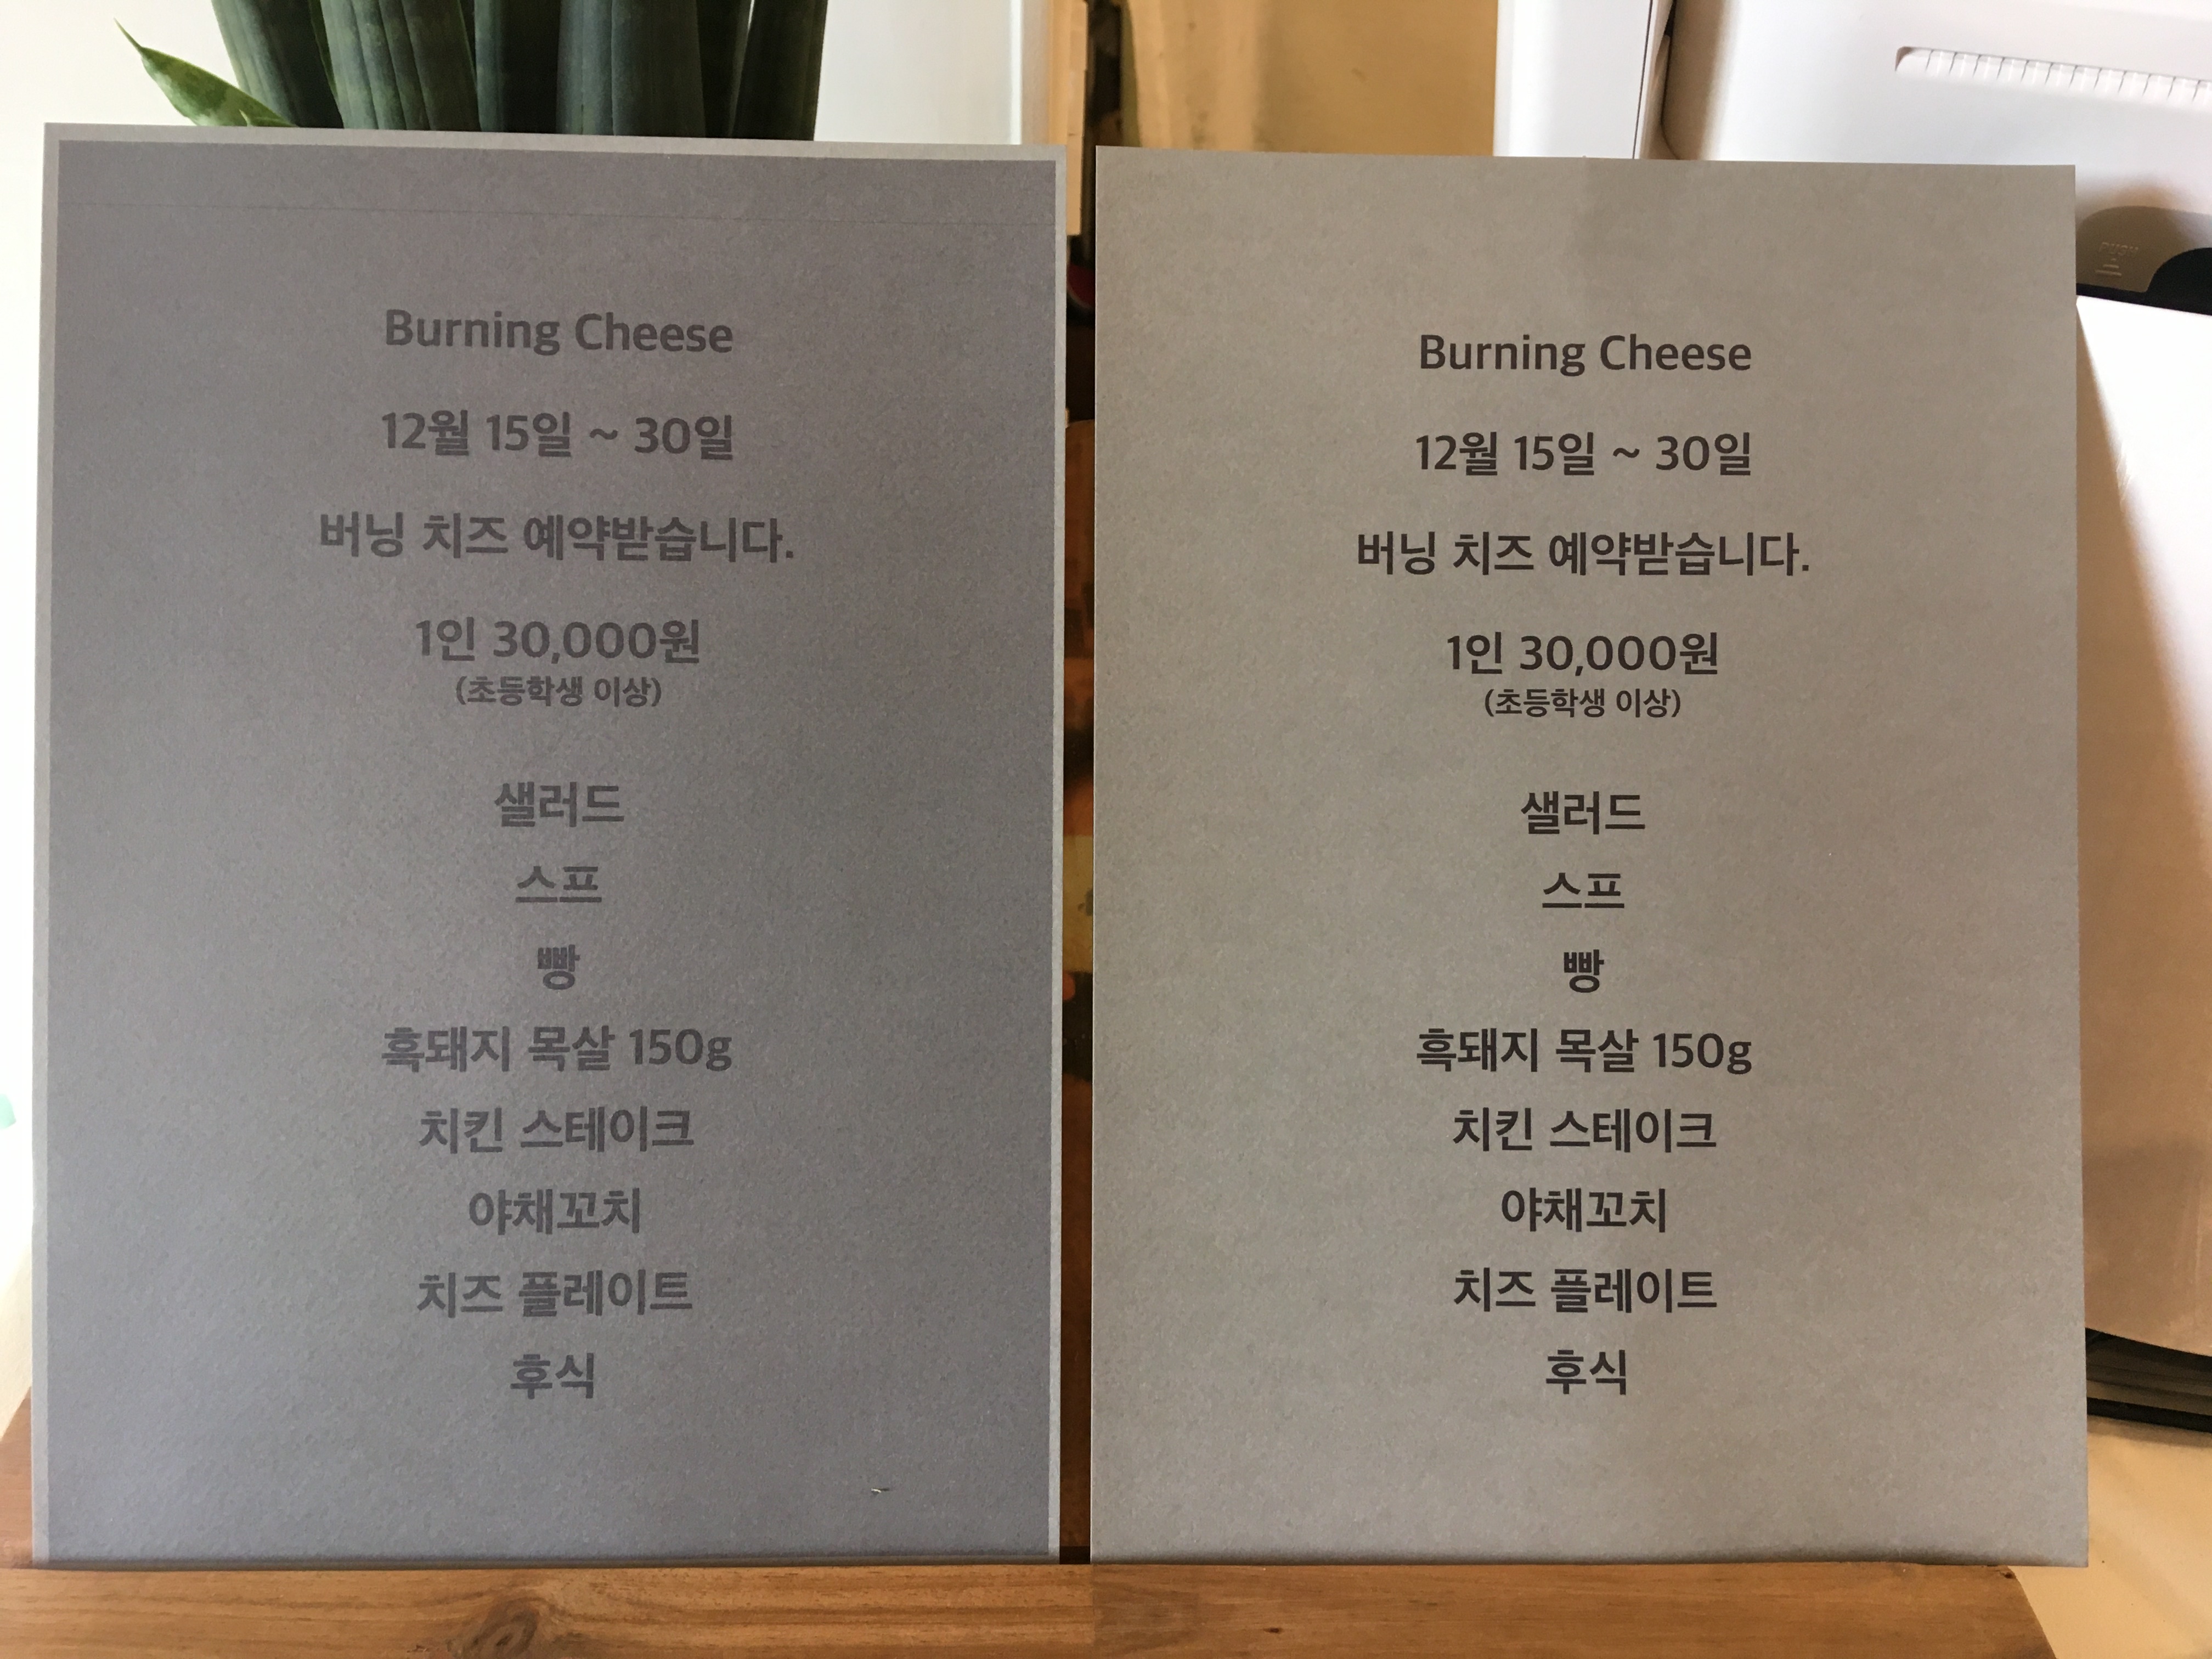 Burning Cheese
12월 15일 ~ 30일
버닝 치즈 예약받습니다.
1인 30,000원
(초등학생 이상)
샐러드
스프
빵
흑돼지 목살 150g
치킨 스테이크
야채꼬치
치즈 플레이트
후식
Burning Cheese
12월 15일 ~ 30일
버닝 치즈 예약받습니다.
1인 30,000원
(초등학생 이상)
샐러드
스프
빵
흑돼지 목살 150g
치킨 스테이크
야채꼬치
치즈 플레이트
후식
PUSH